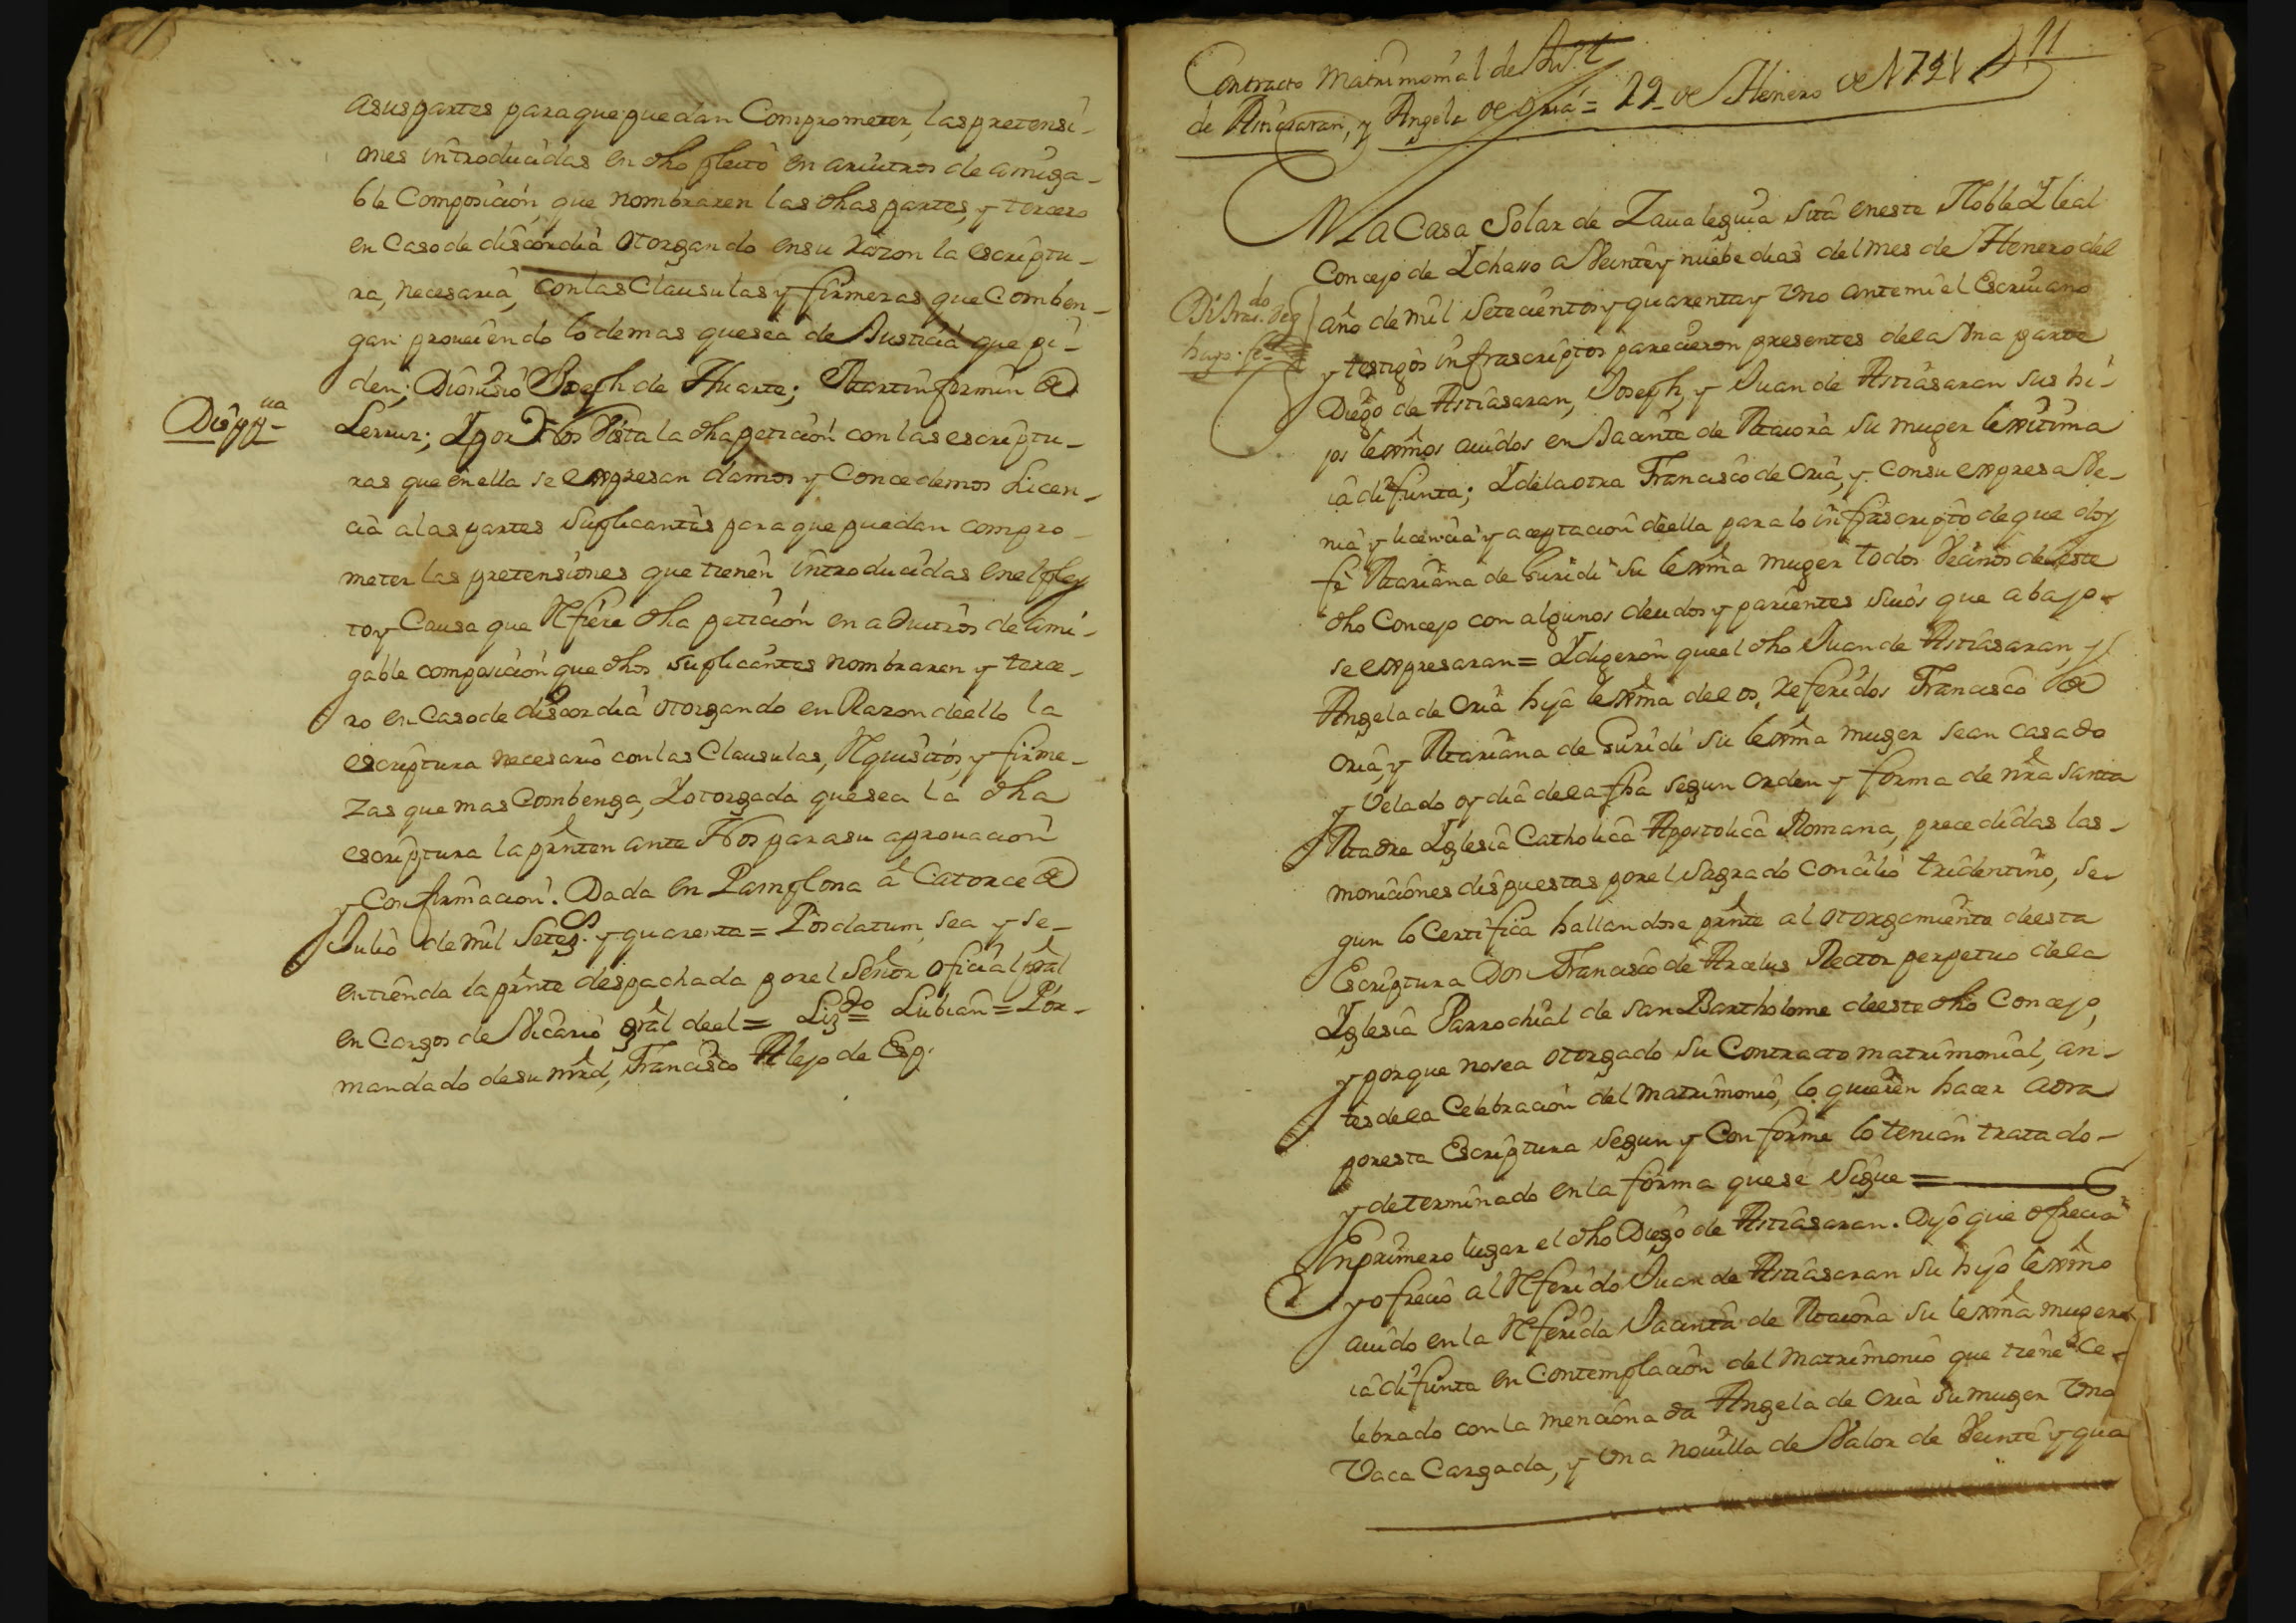 asuspartes paraque puedan Comprometer, las pretensi-
ones introducidas en dho pleito en arvitros de amiga-
ble Composición, que nombraren las dhas partes, y tercero
en Caso de discordia otorgando en su razon la escriptu-
ra, necesaria, con las Clausulas y firmezas que Comben-
gan proueiendo lo demas que sea de Justicia que pi-
den; Dionisio Joseph de Huarte; Martin fermin de
Lerruz; Y por Nos Vista la dha peticion con las escriptu-
ras que en ella se expresan damos y Concedemos Licen-
cia alas partes Suplicantes para que puedan compro-
meter las pretensiones que tienen introducidas en el pley
to y Causa que Refiere dha petición en advitros de ami-
gable composicion que dhos suplicantes nombraren y terce-
ro en Caso de discordia otorgando en Razon deello la
escriptura necesario con las Clausulas, Requisitos, y firme-
zas que mas Combenga, Y otorgada que sea la dha
escriptura la prnten ante Nos para su aprouacion
y Confirmacion. Dada en Pamplona á Catorce de
Julio de mil Setez.os y quarenta= Posdatum sea y se-
entienda la prnte despachada por el Señor oficial prãl
en Cargos de Vicario grãl de el= Liz.do Lubian= Por-
mandado de su mrd, Francisco Alejo de Esp.
Contracto Matrimonial de Ju.º
de Astiasaran, y Angela de Oria= 29 de Henero de 1741 11
En la Casa Solar de Zaualeguia sita en este Noble Y leal
Concejo de Ychasso a Veinte y nuebe dias del mes de Henero del
año de mil Setecientos y quarenta y Uno ante mi el Escriuano
y testigos infrascriptos parecieron presentes de la Vna parte
Diego de Astiasaran, Joseph, y Juan de Astiasaran sus hi-
jos lexmos auidos en Jacinta de Maiora su muger lexitima
ia difunta; Y de la otra Francisco de Oria, y con su expresa Ve-
nia y licencia y aceptacion de ella para lo infrascripto de que doy
fe Mariana de Guridi su lexma muger todos Vecinos de este
dho Concejo con algunos deudos y parientes suios que abajo-
se expresaran= Y digeron que el dho Juan de Astiasaran, y
Angela de Oria hija lexma de los, referidos Francisco de
Oria, y Mariana de Guridi su lexma muger se an casado
y Velado oy dia de la fha segun orden y forma de nra Santa
Madre Yglesia Catholica Apostolica Romana, precedidas las-
moniciones dispuestas por el Sagrado Concilio tridentino, se-
gun lo Certifica hallandose prnte al otorgamiento de esta
Escriptura Don Francisco de Arcelus Rector perpetuo de la
Yglesia Parrochial de San Bartholome de este dho Concejo,
y porque no sea otorgado su Contracto matrimonial, an-
tes de la Celebracion del matrimonio, lo quieren hacer aora
por esta Escriptura segun y Conforme lo tenian tratado-
y determinado en la forma que se Sigue=
En primero lugar el dho Diego de Astiasaran. Dijo que ofrecia
y ofrecio al Referido Juan de Astiasaran su hijo lexmo
auido en la Referida Jacinta de Maiora su lexma muger
ia difunta en Contemplacion del matrimonio que tiene Ce-
lebrado con la mencionada Angela de Oria su muger Una
Vaca Cargada, y Una nouilla de Valor de Veinte y qua